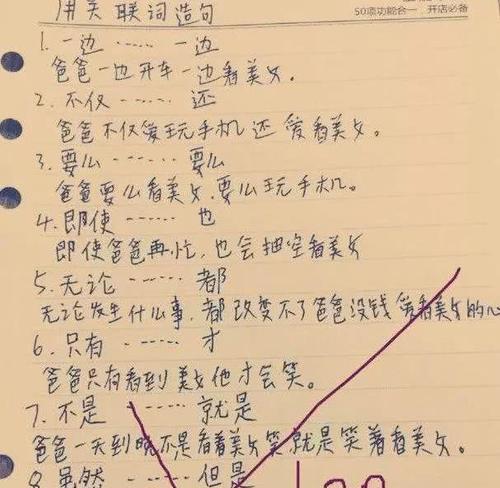 用关联词造句
50项功能合一 开店必备
1. 一边 …… 一边
爸爸一边开车一边看美女。
2. 不仅 …… 还
爸爸不仅爱玩手机还爱看美女。
3. 要么 …… 要么
爸爸要么看美女,要么玩手机。
4. 即使 …… 也
即使爸爸再忙,也会抽空看美女
5. 无论 …… 都
无论发生什么事,都改变不了爸爸没钱爱看美女的心
6. 只有 …… 才
爸爸只有看到美女他才会笑。
7. 不是 …… 就是
爸爸一天到晚不是看着美女笑就是笑着看美女。
8. 虽然 …… 但是
100